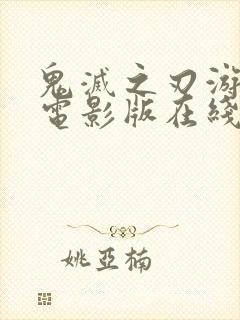 鬼滅之刃游
電影版在綫
姚亞楠